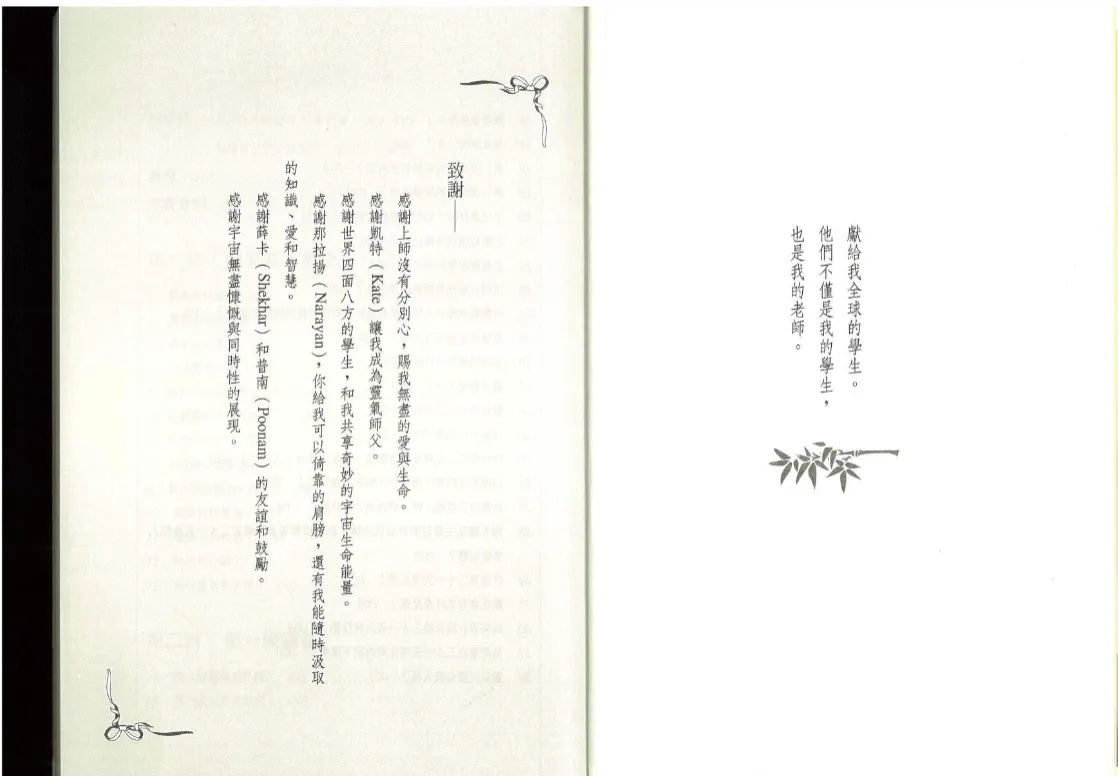 獻給我全球的學生。
他們不僅是我的學生，
也是我的老師。
致謝——
感謝上師沒有分別心，賜我無盡的愛與生命。
感謝凱特（Kate）讓我成為靈氣師父。
感謝世界四面八方的學生，和我共享奇妙的宇宙生命能量。
感謝那拉揚（Narayan），你給我可以倚靠的肩膀，還有我能隨時汲取
的知識、愛和智慧。
感謝薛卡（Shekhar）和普南（Poonam）的友誼和鼓勵。
感謝宇宙無盡慷慨與同時性的展現。